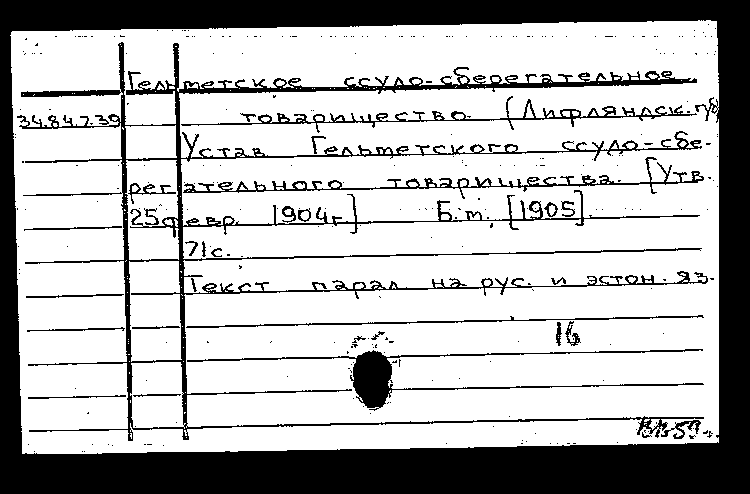 Гельметское ссудо-сберегательное
34.84.7.39 товарищество (Лифляндск. губ)
Устав Гельметского ссудо-сбе-
регательного товарищества. [Утв.
25 февр. 1904 г.] Б. м., [1905].
71 с.
Текст парал. на рус. и эстон. яз.
16